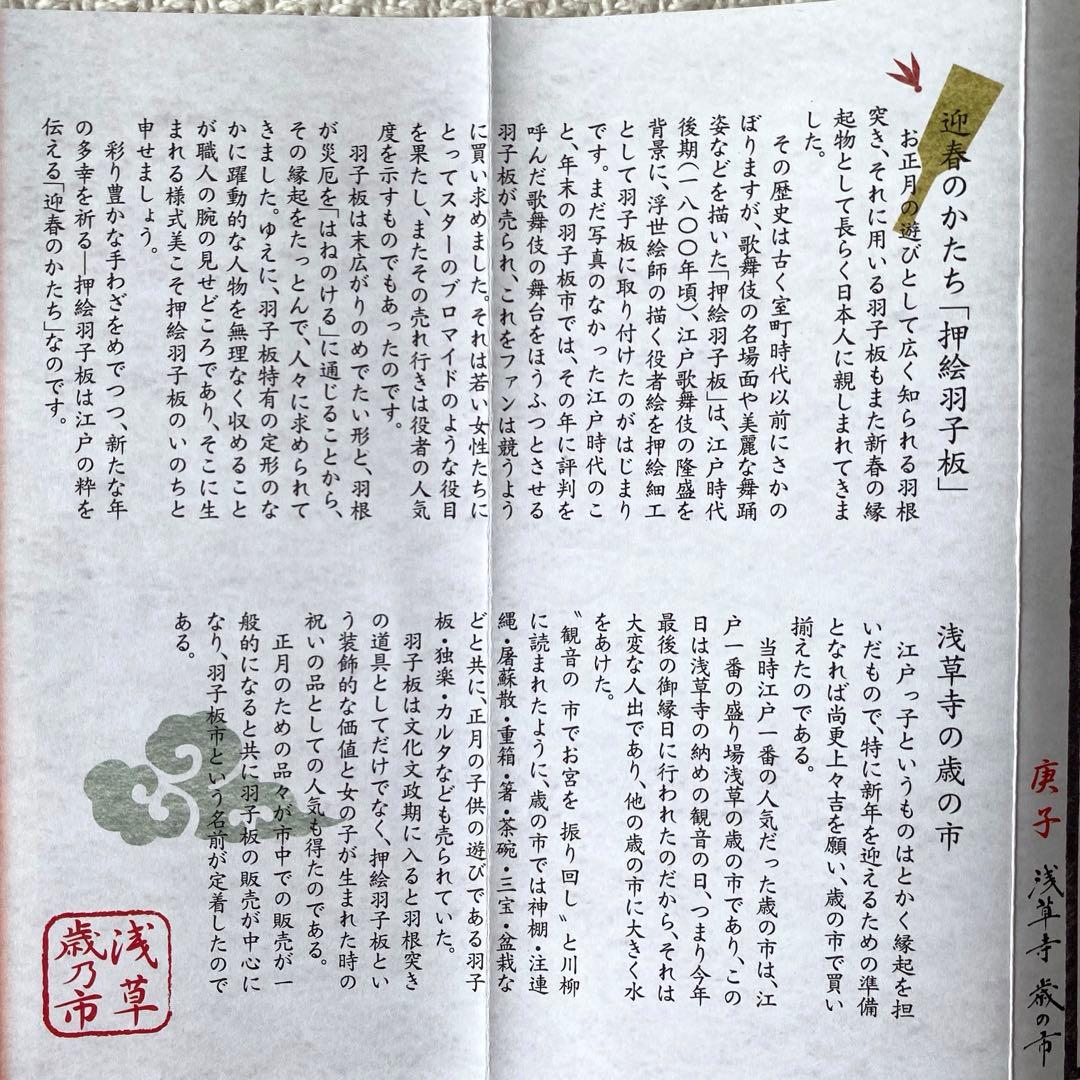 迎春のかたち「押絵羽子板」
お正月の遊びとして広く知られる羽根
突き、それに用いる羽子板もまた新春の縁
起物として長らく日本人に親しまれてきま
した。
その歴史は古く室町時代以前にさかの
ぼりますが、歌舞伎の名場面や美麗な舞踊
姿などを描いた「押絵羽子板」は、江戸時代
後期(一八〇〇年頃)、江戸歌舞伎の隆盛を
背景に、浮世絵師の描く役者絵を押絵細工
として羽子板に取り付けたのがはじまり
です。まだ写真のなかった江戸時代のこ
と、年末の羽子板市では、その年に評判を
呼んだ歌舞伎の舞台をほうふつとさせる
羽子板が売られ、これをファンは競うよう
に買い求めました。それは若い女性たちに
とってスターのブロマイドのような役目
を果たし、またその売れ行きは役者の人気
度を示すものでもあったのです。
羽子板は末広がりのめでたい形と、羽根
が災厄を「はねのける」に通じることから、
その縁起をたっとんで、人々に求められて
きました。ゆえに、羽子板特有の定形のな
かに躍動的な人物を無理なく収めること
が職人の腕の見せどころであり、そこに生
まれる様式美こそ押絵羽子板のいのちと
申せましょう。
彩り豊かな手わざをめでつつ、新たな年
の多幸を祈る―押絵羽子板は江戸の粋を
伝える「迎春のかたち」なのです。
浅草寺の歳の市
江戸っ子というものはとかく縁起を担
いだもので、特に新年を迎えるための準備
となれば尚更上々吉を願い、歳の市で買い
揃えたのである。
当時江戸一番の人気だった歳の市は、江
戸一番の盛り場浅草の歳の市であり、この
日は浅草寺の納めの観音の日、つまり今年
最後の御縁日に行われたのだから、それは
大変な人出であり、他の歳の市に大きく水
をあけた。
〝観音の 市でお宮を 振り回し〟と川柳
に読まれたように、歳の市では神棚・注連
縄・屠蘇散・重箱・箸・茶碗・三宝・盆栽な
どと共に、正月の子供の遊びである羽子
板・独楽・カルタなども売られていた。
羽子板は文化文政期に入ると羽根突き
の道具としてだけでなく、押絵羽子板とい
う装飾的な価値と女の子が生まれた時の
祝いの品としての人気も得たのである。
正月のための品々が市中での販売が一
般的になると共に羽子板の販売が中心に
なり、羽子板市という名前が定着したので
ある。
浅草
歳乃市
庚子 浅草寺 歳の市